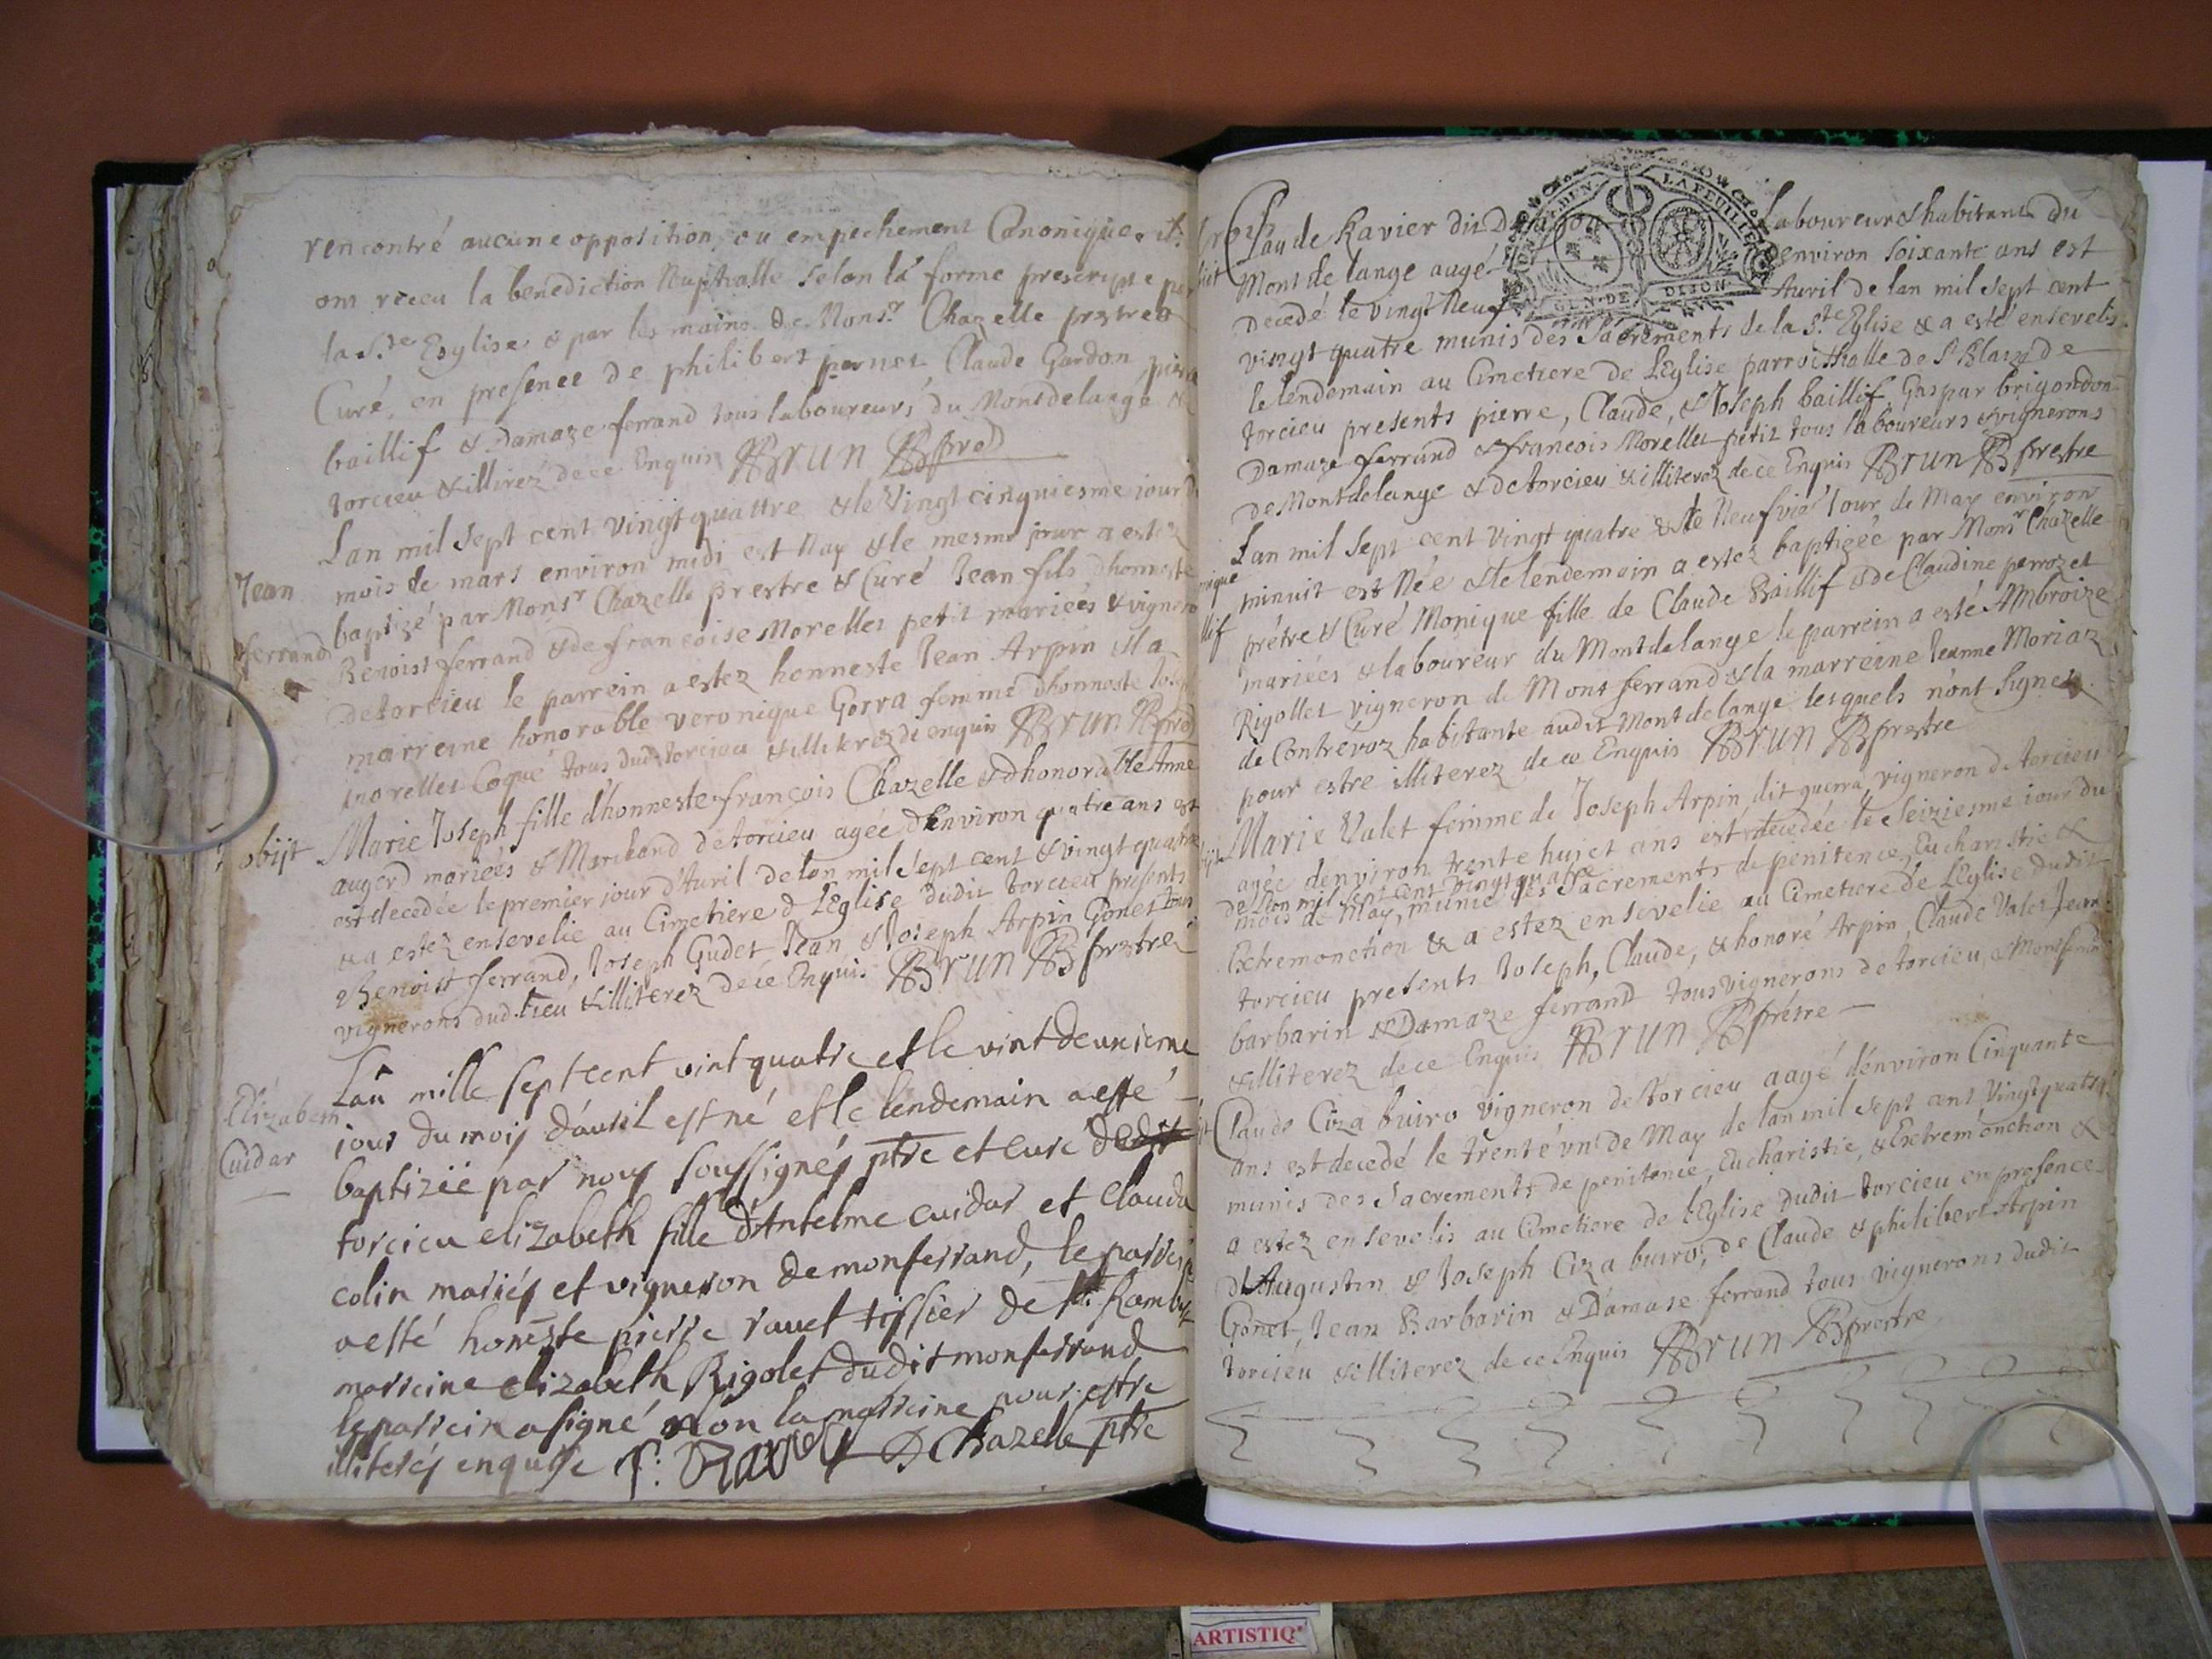 rencontré aucune opposition, ou empechement Canonique. ils
ont receu la benediction Nuptialle selon la forme prescripte par
la S.te Esglise & par les mains de Mons.r Chazelle prestre &
Curé, en presence de philibert pernet Claude Gardon, pierre
baillif & Damaze ferrand tous laboureurs du Montdelange &
torcieu & illirez de ce Enquis BRUN
Lan mil sept cent vingt quattre & le Vingt cinquiesme iour du
mois de mars environ midi est Nay & le mesme jour a estez
Jean
baptizé par Mons.r Chazelle prestre & Curé Jean fils dhonneste
ferrand
Benoist ferrand & de francoise Morellet petit mariées & vigneron
de torcieu le parrein a estez honneste Jean Arpin & la
marreine honorable veronique Gorra femme dhonneste Joseph
morellet Coque tous dud. torcieu & illiterez di enquis BRUN
obijt
Marie Joseph fille dhonneste françois Chazelle & dhonorable Anne
augerd mariées & Marchand de torcieu agée denviron quatre ans est
est decedée le premier jour d'Auril de lan mil sept cent & vingt quatre
& a estez ensevelie au Cimetiere d LEglise dudit torcieu presents
Benoist ferrand, Joseph Gudet Jean & Joseph Arpin Gonet tous
vignerons dud. lieu & illiterez de ce Enquis BRUN prestre
Elizabeth
Cuidar
Lan mille sept cent vint quatre et le vint deuxieme
jour du mois d'auril est né et le lendemain a esté
baptizée par nous soussignés ptre et curé dedit
torcieu elizabeth fille d'Antelme cuidar et Clauda
colin mariés et vigneron de monferrand, le parrein
a esté honeste pierre ravet tissier de st. Rambert
marreine elizabeth Rigolet dudit monferrand
le parrein a signé non la marreine pour estre
illiterés enquise P: Ravet D Chazelle ptre
Claude Ravier dit Laboureur & habitant du
Mont de lange augé denviron soixante ans est
GEN. DE DIJON
LA FEUILLE
decedé le vingt Neuf Auril de lan mil sept cent
vingt quatre munis des Sacrements de la S.te Eglise & a esté ensevelis
le lendemain au Cimetiere de LEglise parroissialle de S.t Blaize de
torcieu presents pierre, Claude, & Joseph baillif, Gaspar brigondon
Damaze ferrand & francois Morellet petit tous laboureurs & vignerons
de Montdelange & de torcieu & illiterez de ce Enquis BRUN prestre
Lan mil sept cent vingt quatre & le Neufvié iour de May environ
minuit est Née & le lendemain a estez baptizée par Mons.r Chazelle
nique
prétre & Curé Monique fille de Claude Baillif & de Claudine perrozet
llif
mariées & laboureur du Montdelange le parrein a esté Ambroize
Rigollet vigneron de Mont ferrand & la marreine Jeanne Moriaz
de Contrévoz habitante audit Montdelange lesquels n'ont signez
pour estre illiterez de ce Enquis BRUN prestre
Marie Valet femme de Joseph Arpin dit guerra, vigneron de torcieu
agée denviron trente huict ans est decedée le Seiziesme iour du
de lan mil sept cent vingt quatre
mois de May, munie des Sacrements de penitence, Eucharistie &
Extremonction & a estez ensevelie au Cimetiere de LEglise dudit
torcieu presents Joseph, Claude, & honoré Arpin, Claude Valet Jean
barbarin & Damaze ferrand tous vignerons de torcieu, & Montferrand
& illiterez de ce Enquis BRUN prétre
Claude Ciza buiro vigneron de torcieu aagé d'environ Cinquante
ans est decedé le trenté un de May de lan mil sept cent Vingt quatre
munis des Sacrements de penitence, Eucharistie, & Extremonction &
a estez ensevelis au Cimetiere de lEglise dudit torcieu en presence
d'Augustin & Joseph Ciza buiro, de Claude & philibert Arpin
Gonet, Jean Barbarin & Damase ferrand tous vignerons dudit
torcieu & illiterez de ce Enquis BRUN prestre
ARTISTIQ